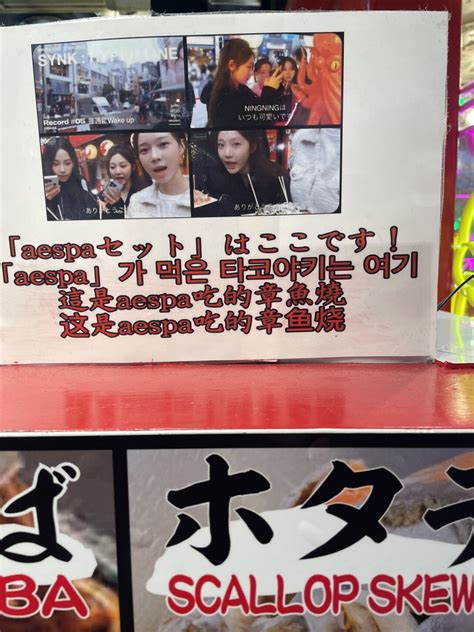 SYNK : HYPER LINE
Record #05
Wake up
NINGNINGは
いつも可愛いです
ありがとう
ありがとう
「aespaセット」はここです！
「aespa」가 먹은 타코야키는 여기
這是aespa吃的章魚燒
这是aespa吃的章鱼烧
ば ホタテ
BA SCALLOP SKEW